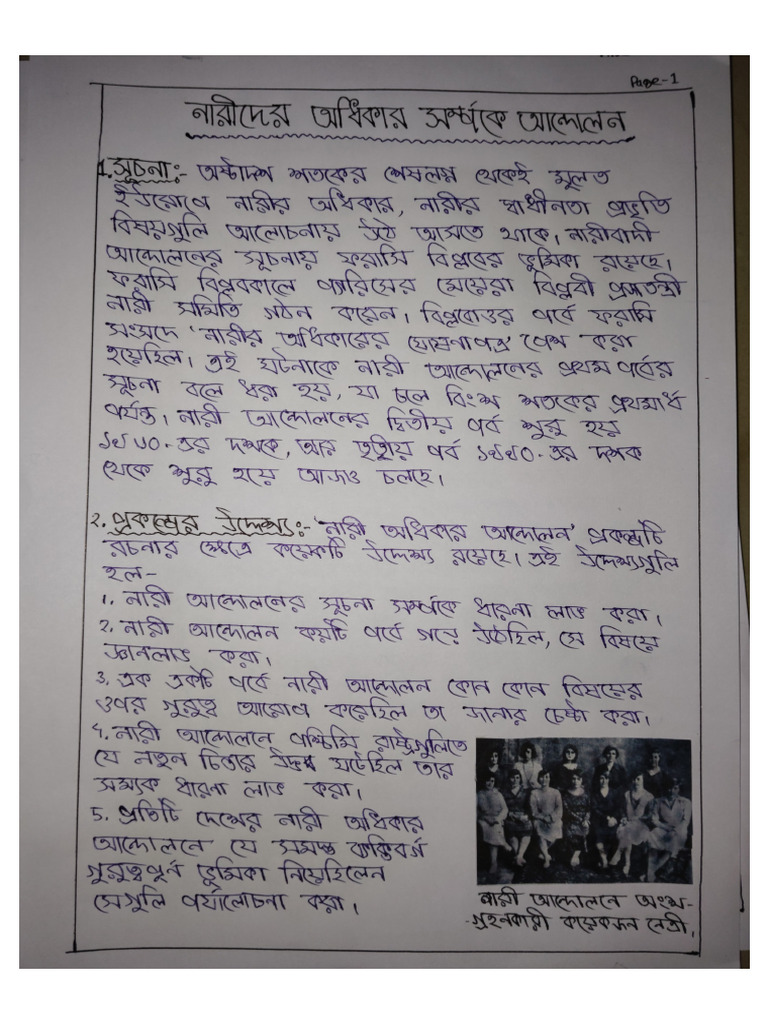 Page-1
নারীদের অধিকার সম্পর্কে আন্দোলন
1. সূচনা:- অষ্টাদশ শতকের শেষলগ্ন থেকেই মূলত
ইউরোপে নারীর অধিকার, নারীর স্বাধীনতা প্রভৃতি
বিষয়গুলি আলোচনায় উঠে আসতে থাকে। নারীবাদী
আন্দোলনের সূচনায় ফরাসি বিপ্লবের ভূমিকা রয়েছে।
ফরাসি বিপ্লবকালে প্যারিসের মেয়েরা বিপ্লবী প্রজাতন্ত্রী
নারী সমিতি গঠন করেন। বিপ্লবোত্তর পর্বে ফরাসি
সংসদে 'নারীর অধিকারের ঘোষণাপত্র' পেশ করা
হয়েছিল। এই ঘটনাকে নারী আন্দোলনের প্রথম পর্বের
সূচনা বলে ধরা হয়, যা চলে বিংশ শতকের প্রথমার্ধ
পর্যন্ত। নারী আন্দোলনের দ্বিতীয় পর্ব শুরু হয়
১৯৬০-এর দশকে, আর তৃতীয় পর্ব ১৯৯০-এর দশক
থেকে শুরু হয়ে আজও চলছে।
২. প্রকল্পের উদ্দেশ্য:- 'নারী অধিকার আন্দোলন' প্রকল্পটি
রচনার ক্ষেত্রে কয়েকটি উদ্দেশ্য রয়েছে। এই উদ্দেশ্যগুলি
হল-
1. নারী আন্দোলনের সূচনা সম্পর্কে ধারনা লাভ করা।
2. নারী আন্দোলন কয়টি পর্বে গড়ে উঠেছিল, সে বিষয়ে
জ্ঞানলাভ করা।
3. এক একটি পর্বে নারী আন্দোলন কোন কোন বিষয়ের
ওপর গুরুত্ব আরোপ করেছিল তা জানার চেষ্টা করা।
4. নারী আন্দোলনে পশ্চিমি রাষ্ট্রগুলিতে
যে নতুন চিন্তার উদ্ভব ঘটেছিল তার
সম্যক ধারনা লাভ করা।
5. প্রতিটি দেশের নারী অধিকার
আন্দোলনে যে সমস্ত ব্যক্তিবর্গ
গুরুত্বপূর্ন ভূমিকা নিয়েছিলেন
সেগুলি পর্যালোচনা করা।
নারী আন্দোলনে অংশ-
-গ্রহনকারী কয়েকজন নেত্রী।